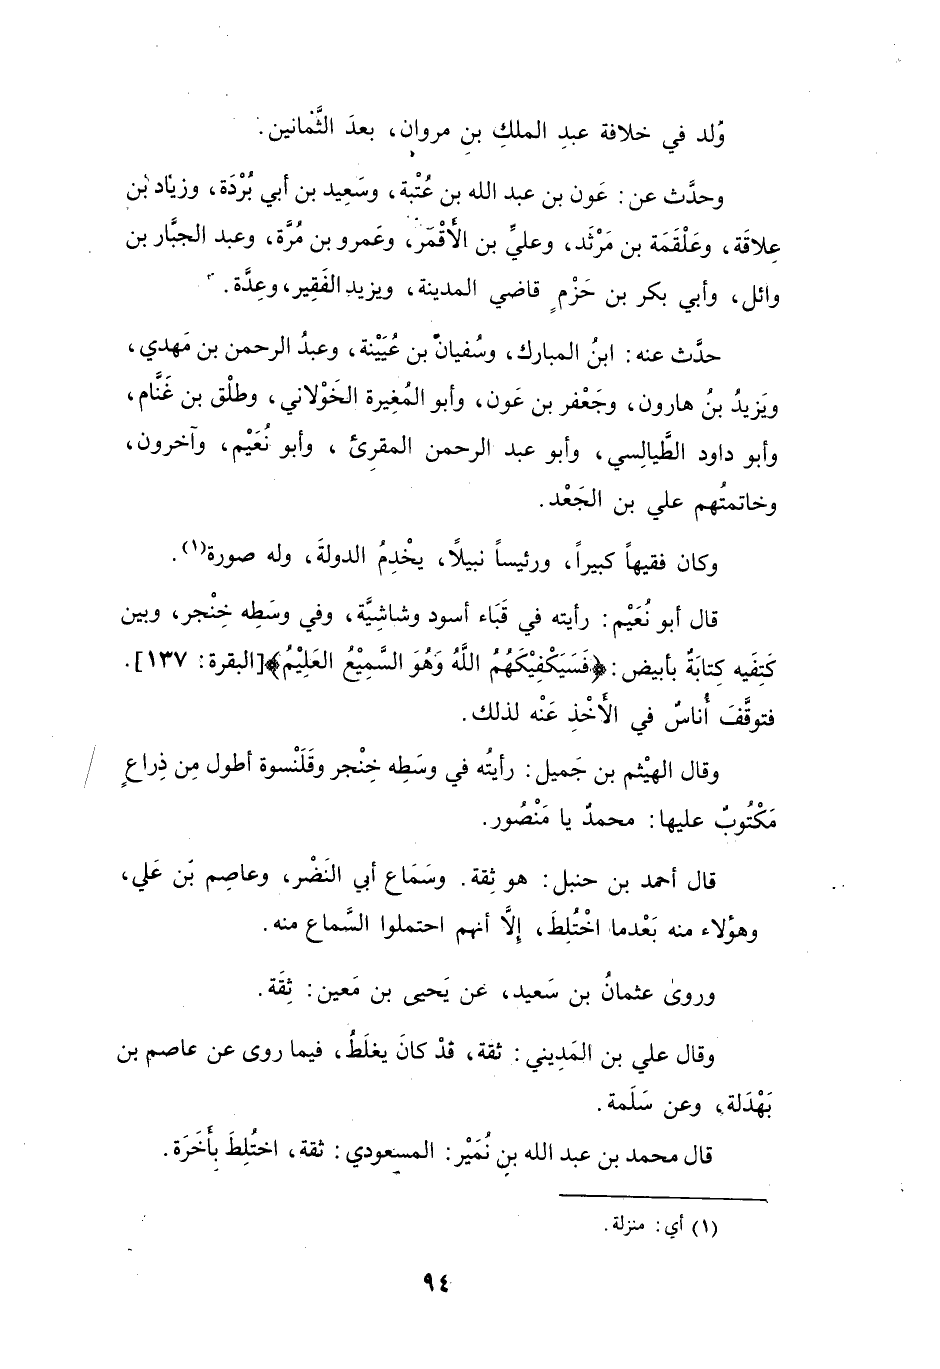 وُلد في خلافة عبدِ الملكِ بنِ مروان، بعدَ الثَّمانين.
وحدَّث عن: عَون بن عبد الله بن عُتْبة، وسَعِيد بن أبي بُرْدَة، وزياد بن
عِلاقَة، وعَلْقَمَة بن مَرْثَد، وعليِّ بن الأَقْمَر، وعَمرو بن مُرَّة، وعبد الجبَّار بن
وائل، وأبي بكر بن حَزْمٍ قاضي المدينة، ويزيد الفَقِير، وعِدَّة.
حدَّث عنه: ابنُ المبارك، وسُفيان بن عُيَيْنة، وعبدُ الرحمن بن مَهدي،
ويَزيدُ بنُ هارون، وجَعْفر بن عَون، وأبو المُغِيرة الخَوْلاني، وطلْق بن غَنَّام،
وأبو داود الطَّيالِسي، وأبو عبد الرحمن المقرِئ، وأبو نُعَيْم، وآخرون،
وخاتمتُهم علي بن الجَعْد.
وكان فقيهاً كبيراً، ورئيساً نبيلاً، يخْدِمُ الدولةَ، وله صورة(١).
قال أبو نُعَيْم: رأيته في قَبَاء أسود وشاشِيَّة، وفي وسَطِه خِنْجر، وبين
كَتِفَيه كِتابَةٌ بأبيض: ﴿فَسَيَكْفِيْكَهُمُ اللَّهُ وَهُوَ السَّمِيْعُ العَلِيْمُ﴾[البقرة: ١٣٧].
فتوقَّفَ أُناسٌ في الأَخْذِ عَنْه لذلك.
وقال الهيْثم بن جَميل: رأيتُه في وسَطِه خِنْجر وقَلَنْسوة أطول مِن ذِراعٍ
مَكْتُوبٌ عليها: محمدٌ يا مَنْصُور.
قال أحمد بن حنبل: هو ثِقة. وسَمَاع أبي النَضْر، وعاصِم بن عَلي،
وهؤلاء منه بَعْدما اخْتُلِطَ، إلَّا أنهم احتملوا السَّماع منه.
وروىٰ عثمانُ بن سَعيد، عَن يَحيى بن مَعين: ثِقَة.
وقال علي بن المَدِيني: ثقة، قدْ كانَ يغلَطُ، فيما روى عن عاصم بن
بَهْدَلة، وعن سَلَمة.
قال محمد بن عبد الله بنِ نُمَيْر: المسعودي: ثقة، اختُلِطَ بِأَخَرَة.
(١) أي: منزلة.
٩٤